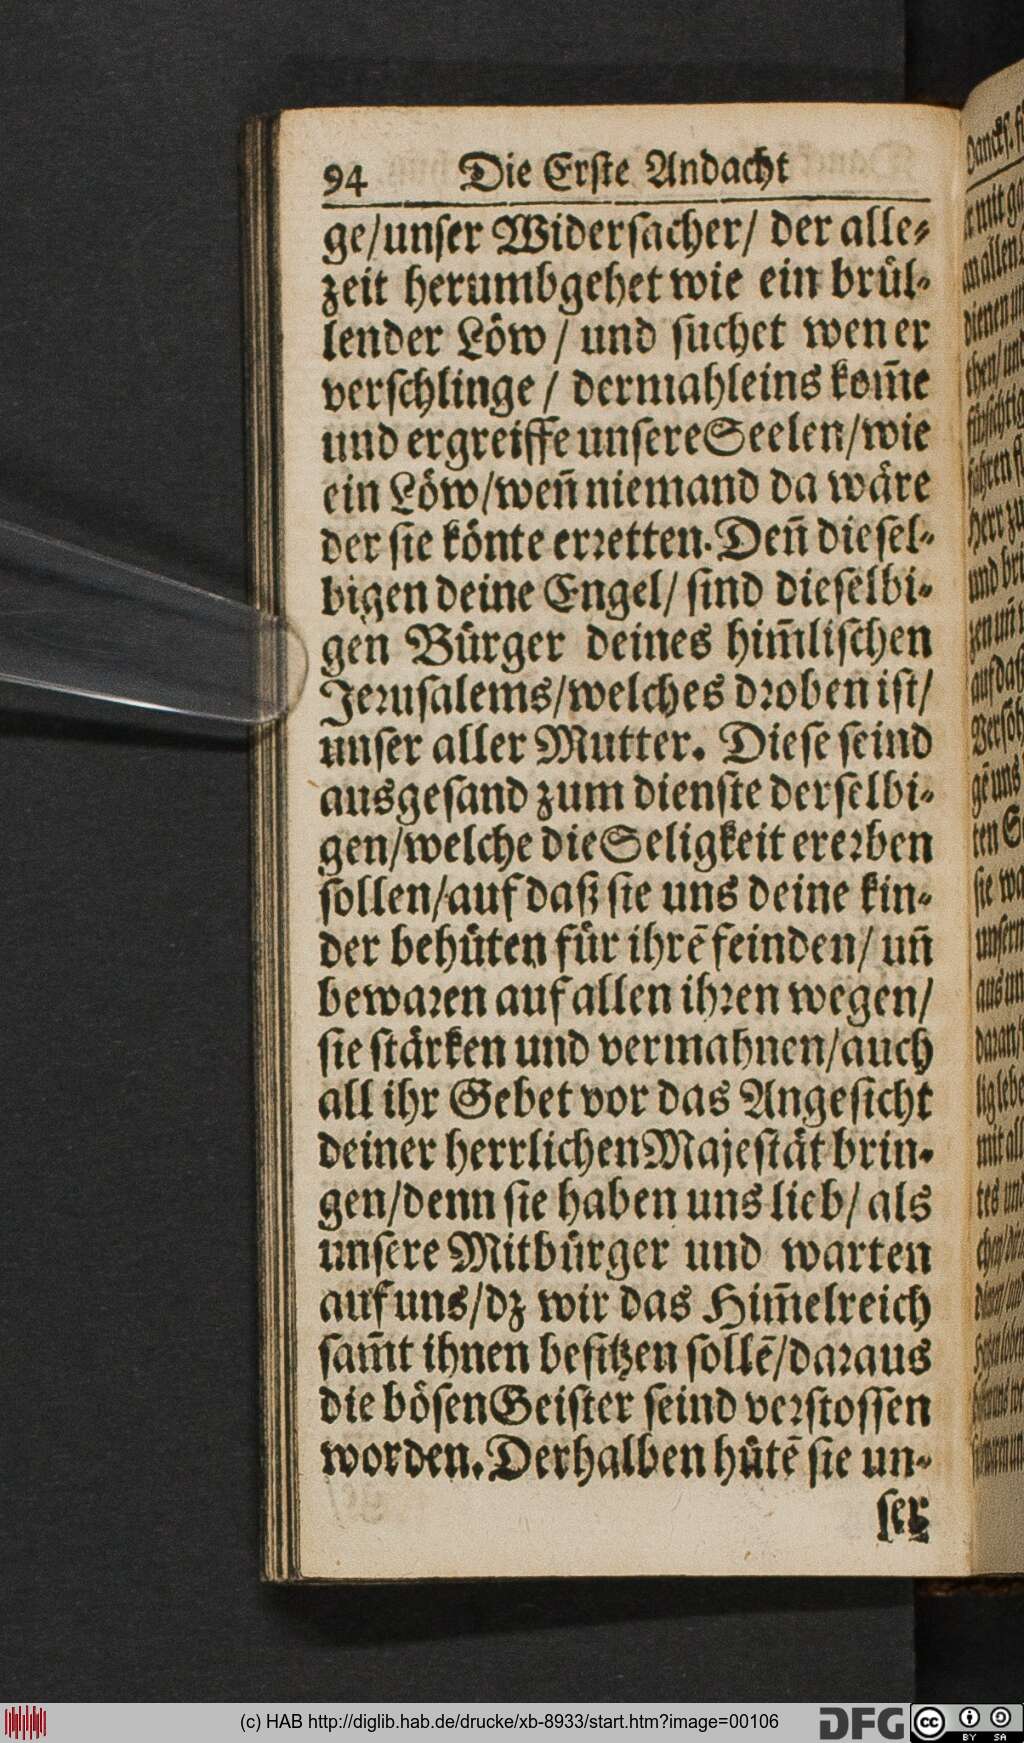 94 Die Erste Andacht
ge/unser Widersacher/ der alle-
zeit herumbgehet wie ein brül-
lender Löw/ und suchet wen er
verschlinge/ dermahleins kom̃e
und ergreiffe unsere Seelen/wie
ein Löw/wen̄ niemand da wäre
der sie könte erretten. Den̄ diesel-
bigen deine Engel/ sind dieselbi-
gen Bürger deines him̃lischen
Jerusalems/welches droben ist/
unser aller Mutter. Diese seind
ausgesand zum dienste derselbi-
gen/welche die Seligkeit ererben
sollen/auf daß sie uns deine kin-
der behüten für ihrē feinden/ un̄
bewaren auf allen ihren wegen/
sie stärken und vermahnen/auch
all ihr Gebet vor das Angesicht
deiner herrlichen Majestät brin-
gen/denn sie haben uns lieb/ als
unsere Mitbürger und warten
auf uns/dz wir das Him̃elreich
sam̃t ihnen besitzen sollē/daraus
die bösen Geister seind verstossen
worden. Derhalben hütē sie un-
ser
(c) HAB http://diglib.hab.de/drucke/xb-8933/start.htm?image=00106
DFG
cc BY SA